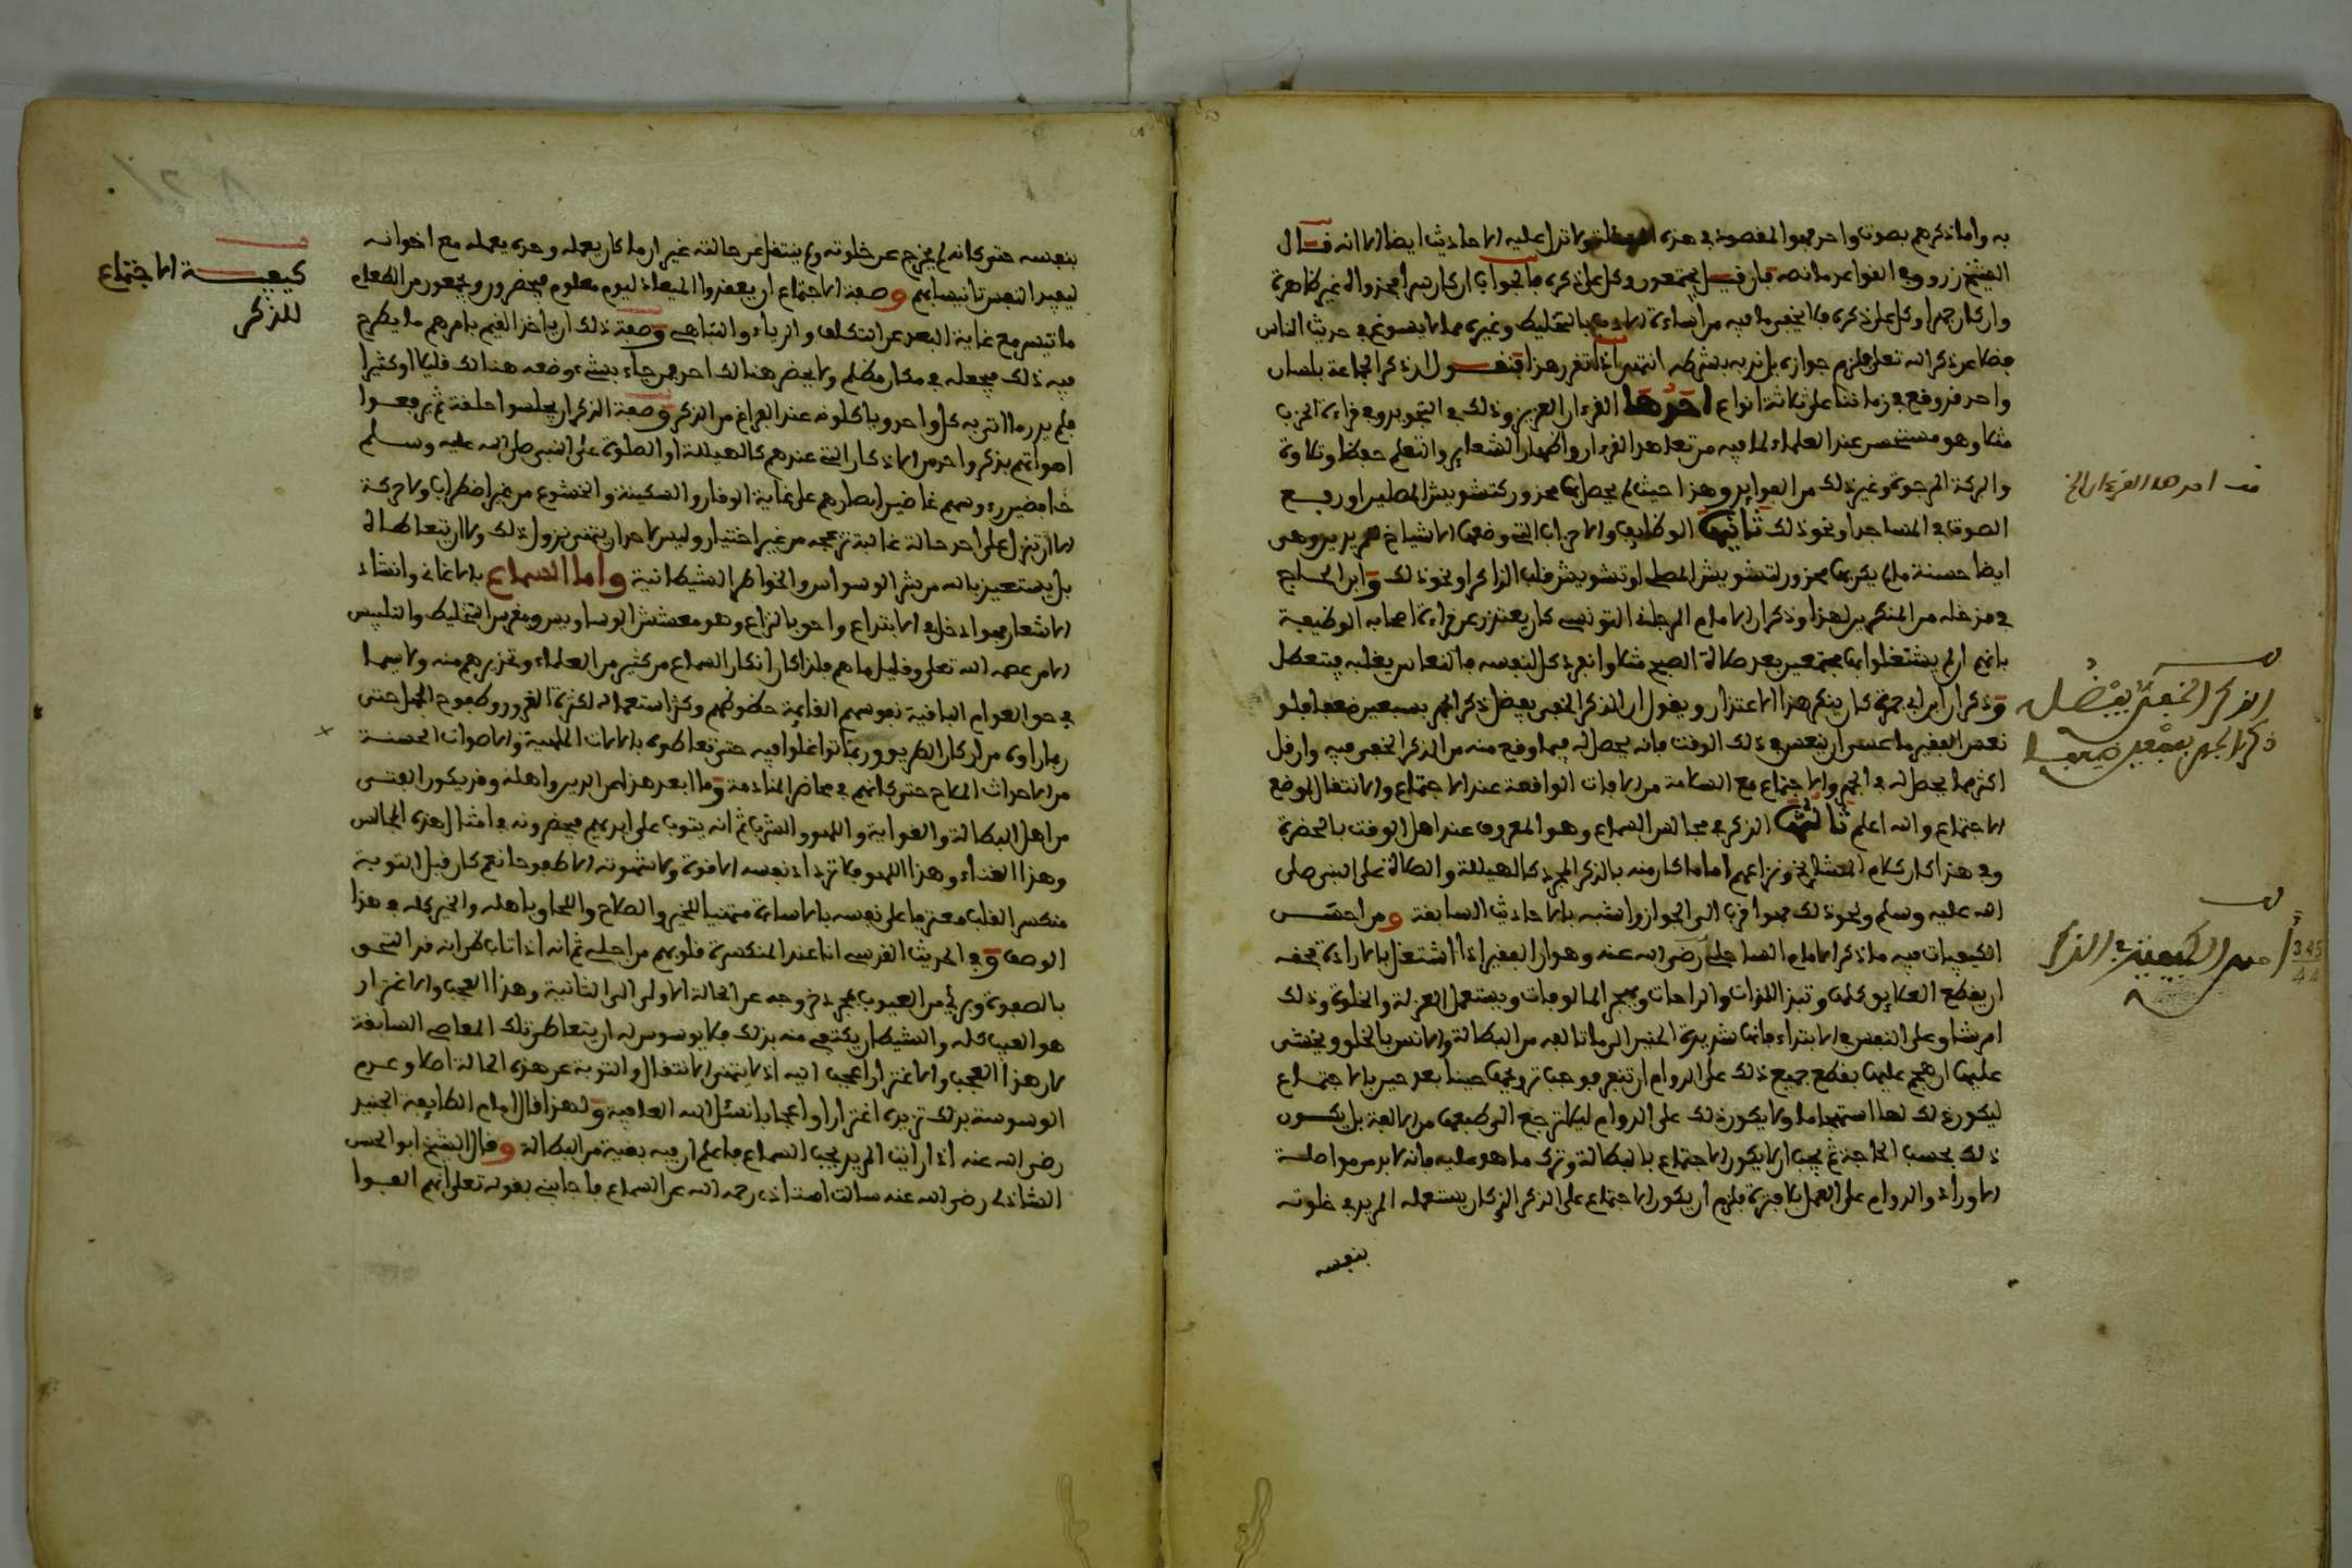 به واما ذكرهم بصوت واحد فهو المقصود في هذه ولا تدل عليه الاحاديث ايضا الا انه قال
الشيخ زروق في القواعد ما نصه فان قيل يجتمعون وكل على ذكره فالجواب ان كان سرا فجدواه غير ظاهرة
وان كان جهرا وكل على ذكره فلا يخفى ما فيه من اساءة الادب بالتخليط وغيره مما لا يسوغ في حديث الناس
فضلا عن ذكر الله تعلى فلزم جوازه بل ندبه بشرطه انتهى اذا تقرر هذا فنقول الذكر الجماعة بلسان
واحد قد وقع في زماننا على ثلاثة انواع احدها القرءان العزيز وذلك في التجويد وفي قراءة الحزب
مثلا وهو مستحسن عند العلماء لما فيه من تعاهد القرءان واظهار الشعاير والتعلم حفظا وتلاوة
والبركة المرجوة وغير ذلك من الفوايد وهذا حيث لم يحصل بها محذور كتشويش المصلين او رفع
الصوت في المساجد او نحو ذلك ثانيها الوظايف والاحزاب التي وضعها الاشياخ للمريدين وهي
ايضا حسنة ما لم يكن بها محذور لتشويش المصلي او تشويش قلب الذاكر او نحو ذلك وابن الحاج
في مدخله من المنكرين لهذا وذكر ان الامام المرجاني التونسي كان يعتذر عن قراءة اصحابه الوظيفة
بانهم ان لم يشتغلوا بها مجتمعين بعد صلاة الصبح مثلا وانفرد كل لنفسه فالنعاس يغلبه فيتعطل
وذكر ان ابن ابي جمرة كان ينكر هذا الاعتذار ويقول ان الذكر الخفي يفضل ذكر الجهر بسبعين ضعفا فلو
نعس الفقير ما عسى ان ينعس في ذلك الوقت فانه يحصل له فيما وقع منه من الذكر الخفي فيه وان قل
اكثر مما يحصل له في الجهر والاجتماع مع السلامة من الافات الواقعة عند الاجتماع والانتقال لموضع
الاجتماع والله اعلم ثالثها الذكر في مجالس السماع وهو المعروف عند اهل الوقت بالحضرة
وفي هذا كان كلام المشايخ ونزاعهم اما ما كان منه بالذكر المجرد كالهيللة والصلاة على النبي صلى
الله عليه وسلم ونحو ذلك فهو اقرب الى الجواز واشبه بالاحاديث السابقة ومن احسن
الكيفيات فيه ما ذكر الامام الساحلي رضي الله عنه وهو ان الفقير اذا اشتغل بالارادة بحقه
ان يقطع العلايق كلها وتبرا اللذات والراحات ويهجر المالوفات ويستعمل العزلة والخلوة وذلك
امر شاق على النفس في الابتداء فانها شديدة الحنين الى مالوفاتها من البطالة والانس بالخلق ويخشى
عليها ان هجم عليها بقطع جميع ذلك على الدوام ان تنفر فوجب ترويحها حينا بعد حين بالاجتماع
ليكون ذلك لها استجماما ولا يكون ذلك على الدوام ليلا ترجع الى طبعها من الالفة بل يكون
ذلك بحسب الحاجة ثم يجب ان لا يكون الاجتماع بالبطالة وترك ما هو عليه فانه لا بد من مواصلة
الاوراد والدوام على العمل فلزم ان يكون الاجتماع على الذكر الذي كان يستعمله المريد في خلوته
بنفسه
قف احدها القرءان الخ
قف
الذكر الخفي يفضل
ذكر الجهر بسبعين ضعفا
قف
احسن الكيفية في الذكر
بنفسه حتى كانه لم يخرج عن خلوته ولم ينتقل عن حالته غير ان ما كان يعمله وحده يعمله مع اخوانه
ليفيد النفس تانيسا بهم وصفة الاجتماع ان يعقدوا الميعاد ليوم معلوم فيحضرون ويجمعون من الطعام
ما تيسر مع غاية البعد عن التكلف والرياء والتباهي وصفة ذلك ان ياخذ القيم بامرهم ما يطرح
فيه ذلك فيجعله في مكان مظلم ولا يحضر هنالك احد فمن جاء بشيء وضعه هنالك قليلا او كثيرا
فلم يدر ما اتى به كل واحد وياكلونه عند الفراغ من الذكر وصفة الذكر ان يجلسوا حلقة ثم يرفعوا
اصواتهم بذكر واحد من الاذكار التي عندهم كالهيللة او الصلاة على النبي صلى الله عليه وسلم
خافضين رءوسهم غاضين ابصارهم على غاية الوقار والسكينة والخشوع من غير اضطراب ولا حركة
الا ان تنزل على احد حالة غالبة تزعجه من غير اختيار وليس لاحد ان يتمنى نزول ذلك ولا ان يتعاطاه
بل يستعيذ بالله من شر الوسواس والخواطر الشيطانية واما السماع بالاغاني وانشاد
الاشعار فهو ادخل في الابتداع واحق بالنزاع وهو معشش الوساويس ومغرس التخليط والتلبيس
الا من عصمه الله تعلى وقليل ما هم فلذا كان انكار السماع من كثير من العلماء وتحذيرهم منه ولا سيما
في حق العوام الباقية نفوسهم القايمة حظوظهم وكذا استعماله لكثرة الغرور وطفوح الجهل حتى
ربما راوه من اركان الطريق وربما تواغلوا فيه حتى تعاطوه بالالات الملهية والاصوات الحسنة
من الاحداث الملاح حتى كانهم في محاضر المنادمة وما ابعد هذا عن الدين واهله وقد يكون الفتى
من اهل البطالة والغواية واللهو والشرب ثم انه يتوب على ايديهم فيحضرونه في امثال هذه المجالس
وهذا الغناء وهذا اللهو فلا تزداد نفسه الا قوة ولا شهوته الا طفوحا نعم كان قبل التوبة
منكسر القلب معترفا على نفسه بالاساءة متمنيا للخير والصلاح واللحاق باهله والخير كله في هذا
الوصف وفي الحديث القدسي انا عند المنكسرة قلوبهم من اجلي ثم انه اذا تاب ظن انه قد التحق
بالصفوة وبرئ من العيوب بمجرد خروجه عن الحالة الاولى الى الثانية وهذا العجب والاغترار
هو العيب كله والشيطان يكتفي منه بذلك فلا يوسوس له ان يتعاطى تلك المعاصي السابقة
لان هذا العجب والاغترار اعجب اليه اذ لا يتمنى الانتقال والتوبة عن هذه الحالة اصلا وعدم
الوسوسة بذلك تزيده اغترارا واعجابا نسئل الله العافية ولهذا قال امام الطايفة الجنيد
رضي الله عنه اذا رايت المريد يحب السماع فاعلم ان فيه بقية من البطالة وقال الشيخ ابو الحسن
الشاذلي رضي الله عنه سالت استاذي رحمه الله عن السماع فاجابني بقوله تعلى انهم الفوا
كيفية الاجتماع
للذكر